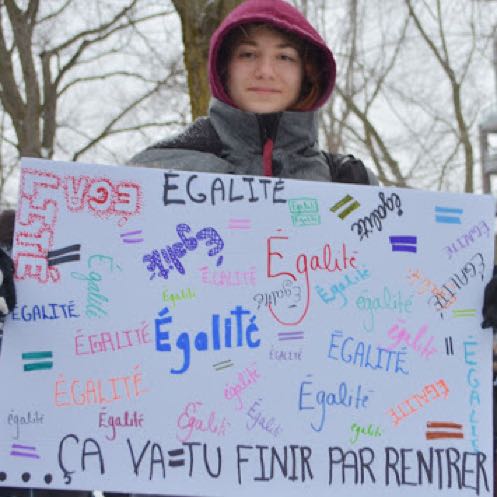 ÉGALITÉ
ÉGALITÉ
Égalité
Égalité
Égalité
Égalité
ÉGALITÉ
Égalité
Égalité
ÉGALITÉ
Égalité
ÉGALITÉ
égalité
Égalité
Égalité
égalité
ÉGALITÉ
ÉGALITÉ
Égalité
ÉGALITÉ
égalité
ÉGALITÉ
ÉGALITÉ
ÉGALITÉ
égalité
Égalité
ÉGALITÉ
ÉGALITÉ
égalité
Égalité
Égalité
Égalité
égalité
...ÇA VA=TU FINIR PAR RENTRER